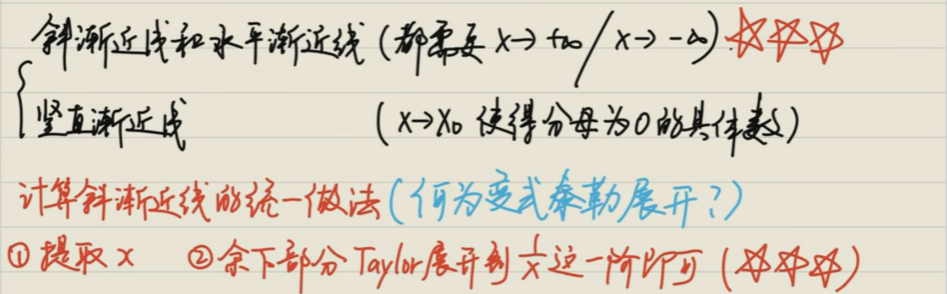 斜渐近线和水平渐近线 (都需要 x→+∞ / x→-∞) ☆☆☆
竖直渐近线 (x→x₀ 使得分母为0的具体数)
计算斜渐近线的统一做法 (何为变式泰勒展开?)
① 提取 x ② 余下部分 Taylor展开到 1/x 这一阶即可 (☆☆☆)